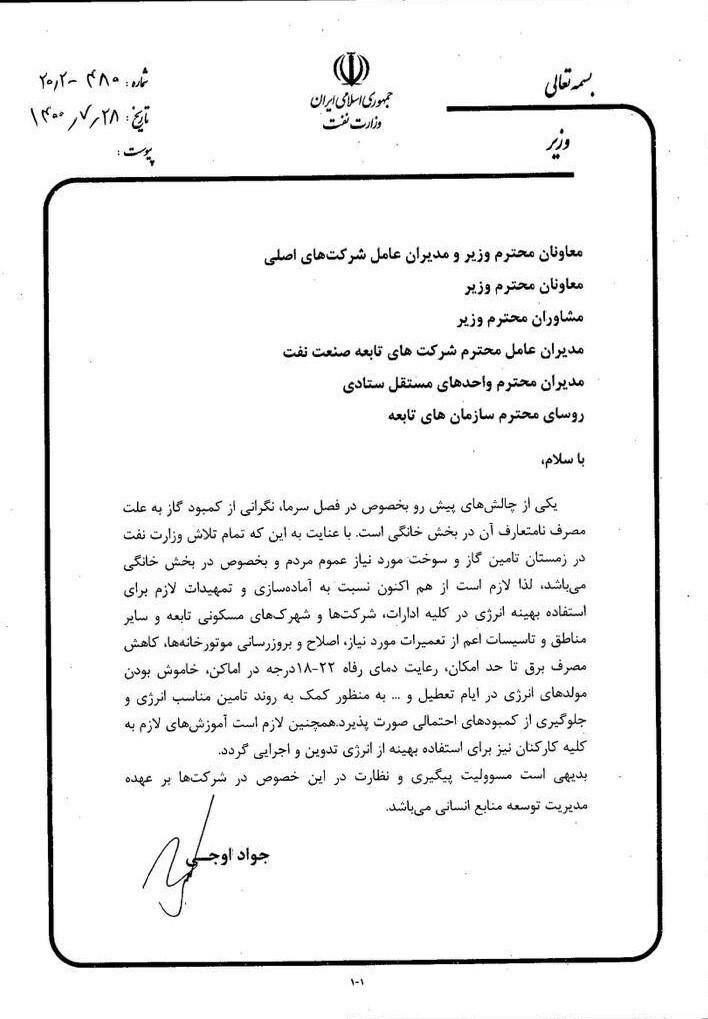 بسمه تعالی
جمهوری اسلامی ایران
وزارت نفت
وزیر
شماره: ۴۸۰-۲۰٫۲
تاریخ: ۱۴۰۰٫۷٫۲۸
پیوست:
معاونان محترم وزیر و مدیران عامل شرکت‌های اصلی
معاونان محترم وزیر
مشاوران محترم وزیر
مدیران عامل محترم شرکت های تابعه صنعت نفت
مدیران محترم واحدهای مستقل ستادی
روسای محترم سازمان های تابعه
با سلام،
یکی از چالش‌های پیش رو بخصوص در فصل سرما، نگرانی از کمبود گاز به علت
مصرف نامتعارف آن در بخش خانگی است. با عنایت به این که تمام تلاش وزارت نفت
در زمستان تامین گاز و سوخت مورد نیاز عموم مردم و بخصوص در بخش خانگی
می‌باشد، لذا لازم است از هم اکنون نسبت به آماده‌سازی و تمهیدات لازم برای
استفاده بهینه انرژی در کلیه ادارات، شرکت‌ها و شهرک‌های مسکونی تابعه و سایر
مناطق و تاسیسات اعم از تعمیرات مورد نیاز، اصلاح و بروزرسانی موتورخانه‌ها، کاهش
مصرف برق تا حد امکان، رعایت دمای رفاه ۲۲-۱۸درجه در اماکن، خاموش بودن
مولدهای انرژی در ایام تعطیل و ... به منظور کمک به روند تامین مناسب انرژی و
جلوگیری از کمبودهای احتمالی صورت پذیرد.همچنین لازم است آموزش‌های لازم به
کلیه کارکنان نیز برای استفاده بهینه از انرژی تدوین و اجرایی گردد.
بدیهی است مسوولیت پیگیری و نظارت در این خصوص در شرکت‌ها بر عهده
مدیریت توسعه منابع انسانی می‌باشد.
جواد اوجی
۱-۱